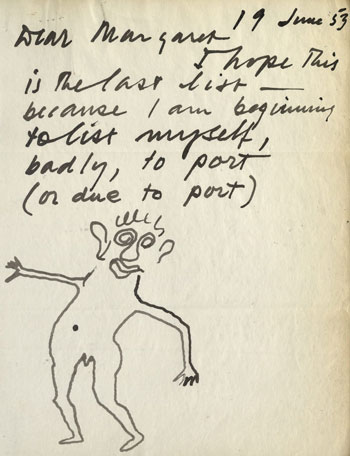 19 June 53
Dear Margaret
I hope this
is the last list —
because I am beginning
to list myself,
badly, to port
(or due to port)